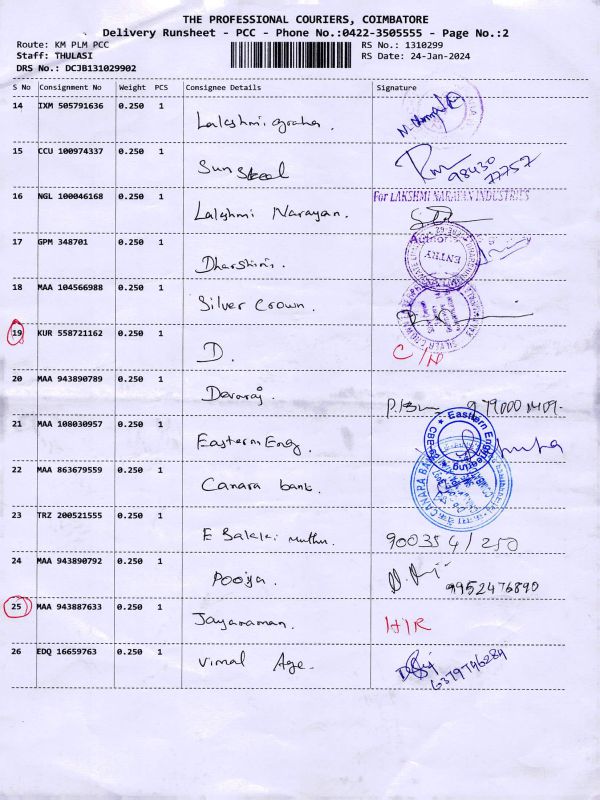 THE PROFESSIONAL COURIERS, COIMBATORE
Delivery Runsheet - PCC - Phone No.:0422-3505555 - Page No.:2
Route: KM PLM PCC RS No.: 1310299
Staff: THULASI RS Date: 24-Jan-2024
DRS No.: DCJB131029902
S No Consignment No Weight PCS Consignee Details Signature
14 IXM 505791636 0.250 1 Lakshmi graha.
15 CCU 100974337 0.250 1 Sun Steel
98430
77757
16 NGL 100046168 0.250 1 Lakshmi Narayan.
For LAKSHMI NARAYAN INDUSTRIES
17 GPM 348701 0.250 1 Dharshini.
ENTRY
18 MAA 104566988 0.250 1 Silver Crown.
19 KUR 558721162 0.250 1 D. C/N
20 MAA 943890789 0.250 1 Devaraj.
21 MAA 108030957 0.250 1 Eastern Eng.
Eastern Engineering
22 MAA 863679559 0.250 1 Canara bank.
CANARA BANK
23 TRZ 200521555 0.250 1 E Balaki muthu. 900354/250
24 MAA 943890792 0.250 1 Pooja. 9952476890
25 MAA 943887633 0.250 1 Jayaraman. H/R
26 EDQ 16659763 0.250 1 Vimal Age. 6379746284